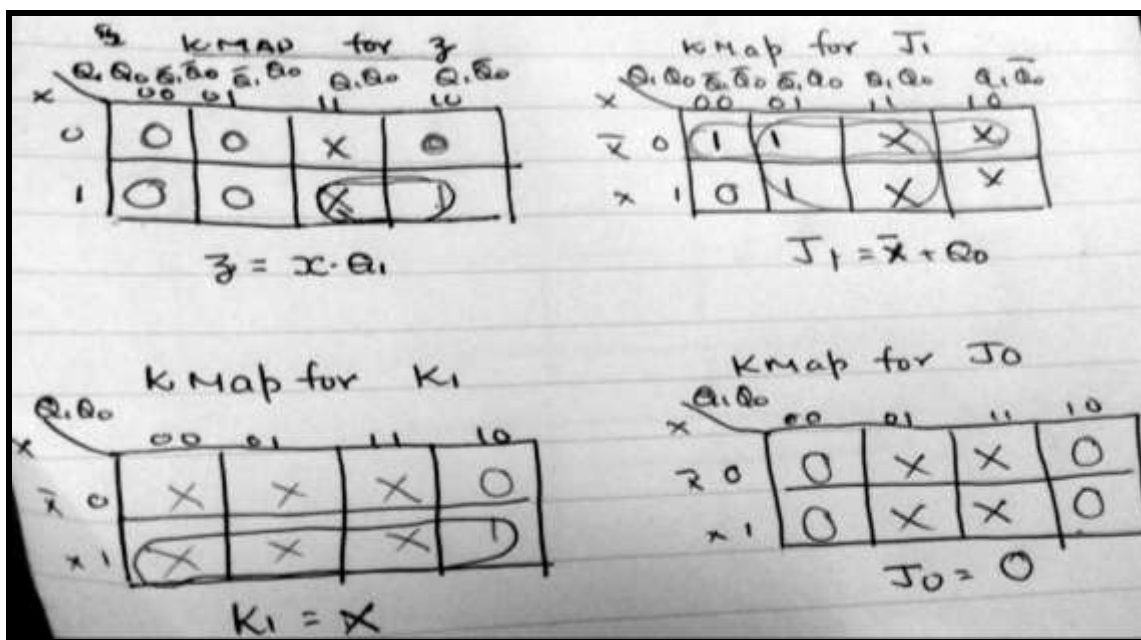 K MAP for z
Q₁Q₀ Q̄₁Q̄₀ Q̄₁Q₀ Q₁Q₀ Q₁Q̄₀
x 00 01 11 10
0 0 0 x 0
1 0 0 x 1
z = x·Q₁
K Map for J₁
Q₁Q₀ Q̄₁Q̄₀ Q̄₁Q₀ Q₁Q₀ Q₁Q̄₀
x 00 01 11 10
x̄ 0 1 1 x x
x 1 0 1 x x
J₁ = x̄ + Q₀
K Map for K₁
Q₁Q₀
x 00 01 11 10
x̄ 0 x x x 0
x 1 x x x 1
K₁ = x
K Map for J0
Q₁Q₀
x 00 01 11 10
x̄ 0 0 x x 0
x 1 0 x x 0
J0 = 0